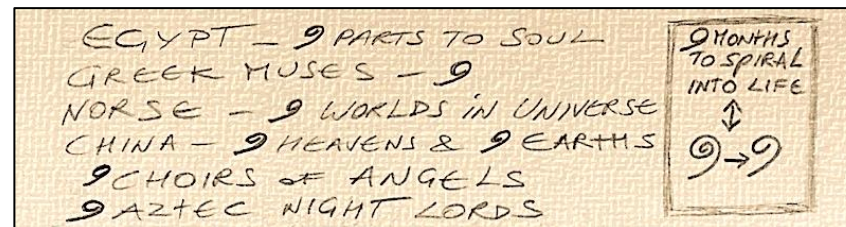 EGYPT – 9 PARTS TO SOUL
GREEK MUSES – 9
NORSE – 9 WORLDS IN UNIVERSE
CHINA – 9 HEAVENS & 9 EARTHS
9 CHOIRS OF ANGELS
9 AZTEC NIGHT LORDS
9 MONTHS
TO SPIRAL
INTO LIFE
↕
9→9